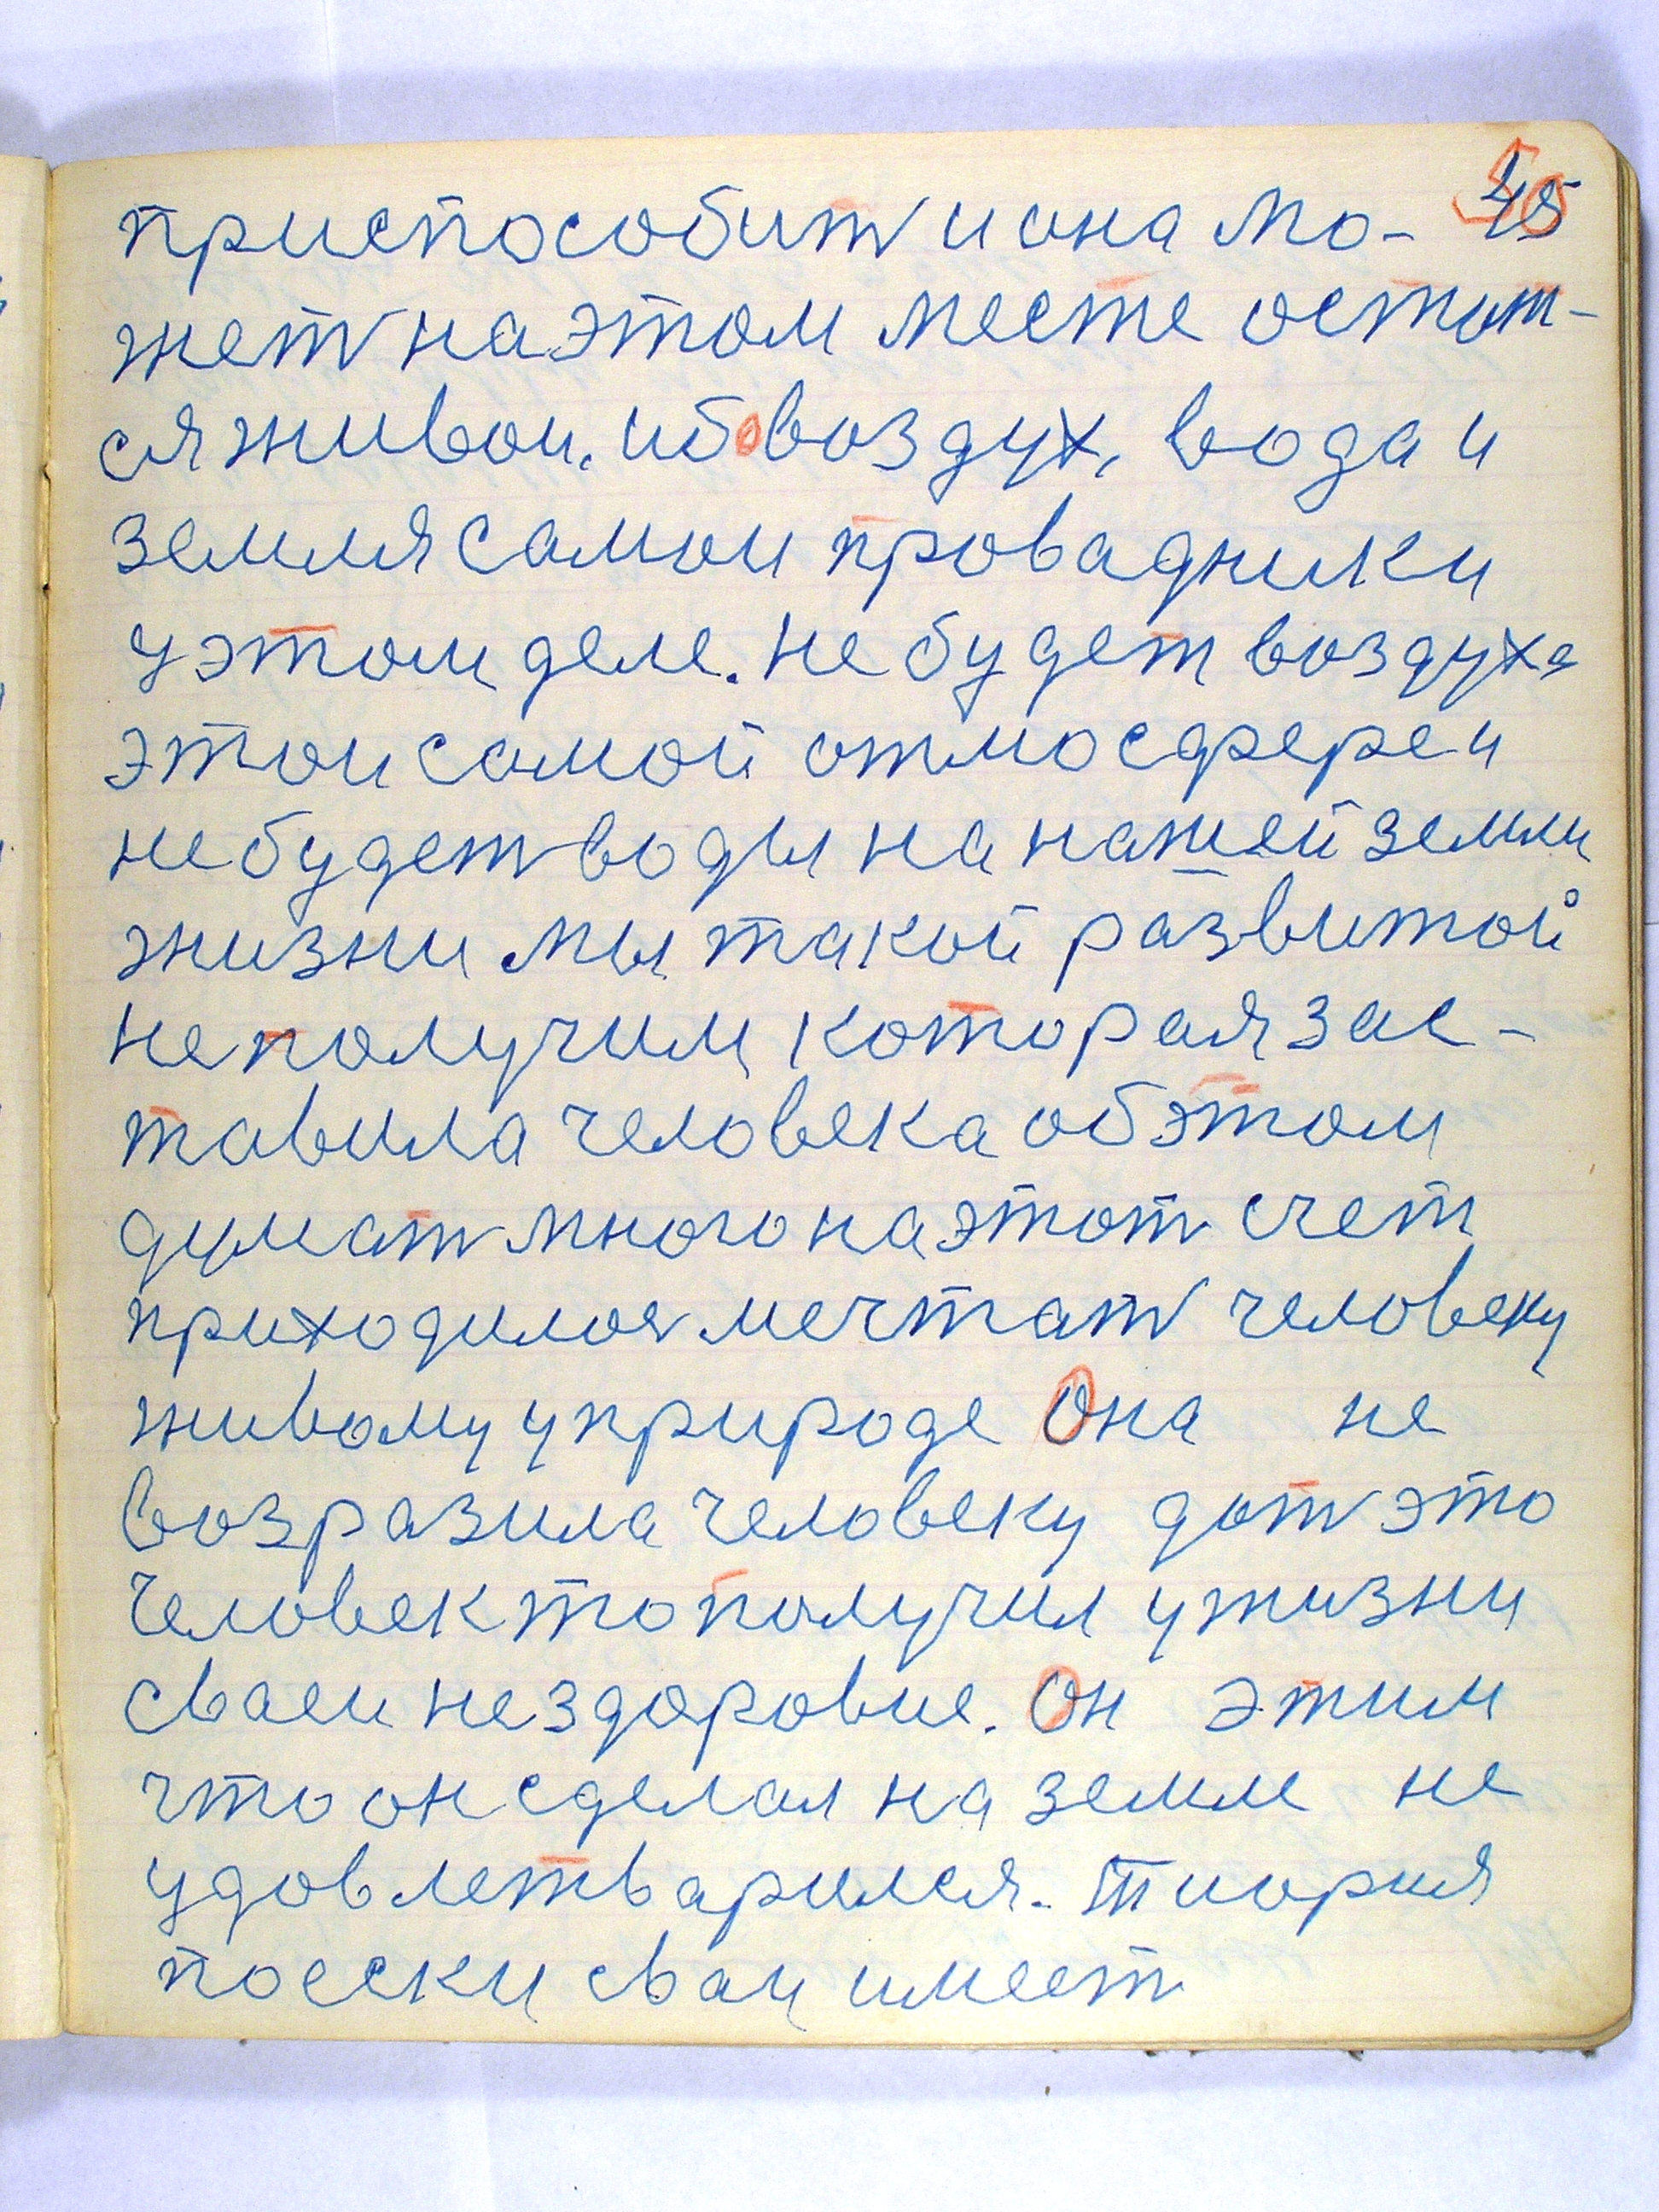 45
50
приспособит и она мо-
жет на этом месте остат-
ся живои. ибо воздух, вода и
земля самои провадники
у этом деле. не будет воздуха
этои самой отмосфере и
не будет воды на нашей земли
жизни мы такой развитой
не получим которая зас-
тавила человека об этом
думат много на этот счет
приходилос мечтат человеку
живому у природе Она не
возразила человеку дат это
Человек то получил у жизни
сваеи не здоровие. Он этим
что он сделал на земле не
удовлетварился. Тиория
поески сваи имеет